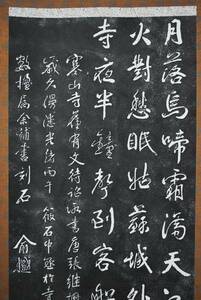 月落烏啼霜滿天
火對愁眠姑蘇城外
寺夜半鐘聲到客船
寒山寺舊有文待詔所書唐張繼
歲久漫漶光緒丙午筱石中丞於寺
數楹屬余補書刻石
俞樾